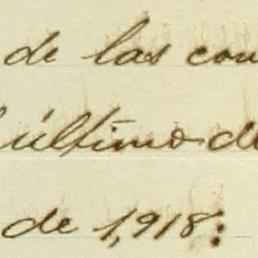 de las con
último de
de 1,918: